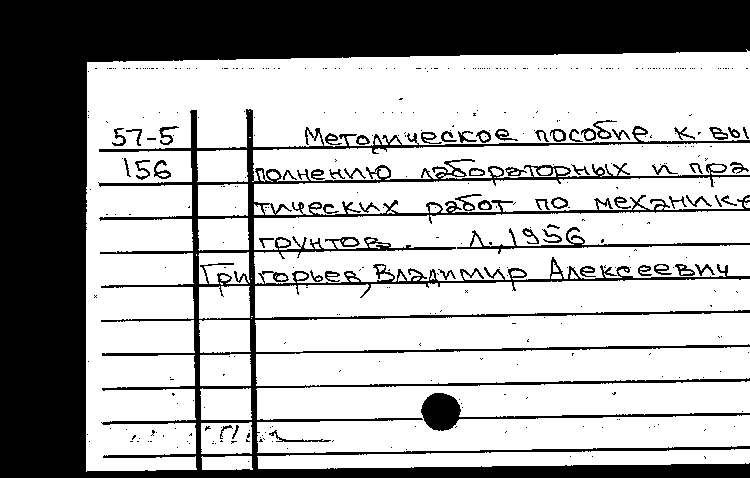 57-5 Методическое пособие к вы
156 полнению лабораторных и пра
тических работ по механике
грунтов. Л., 1956.
Григорьев, Владимир Алексеевич